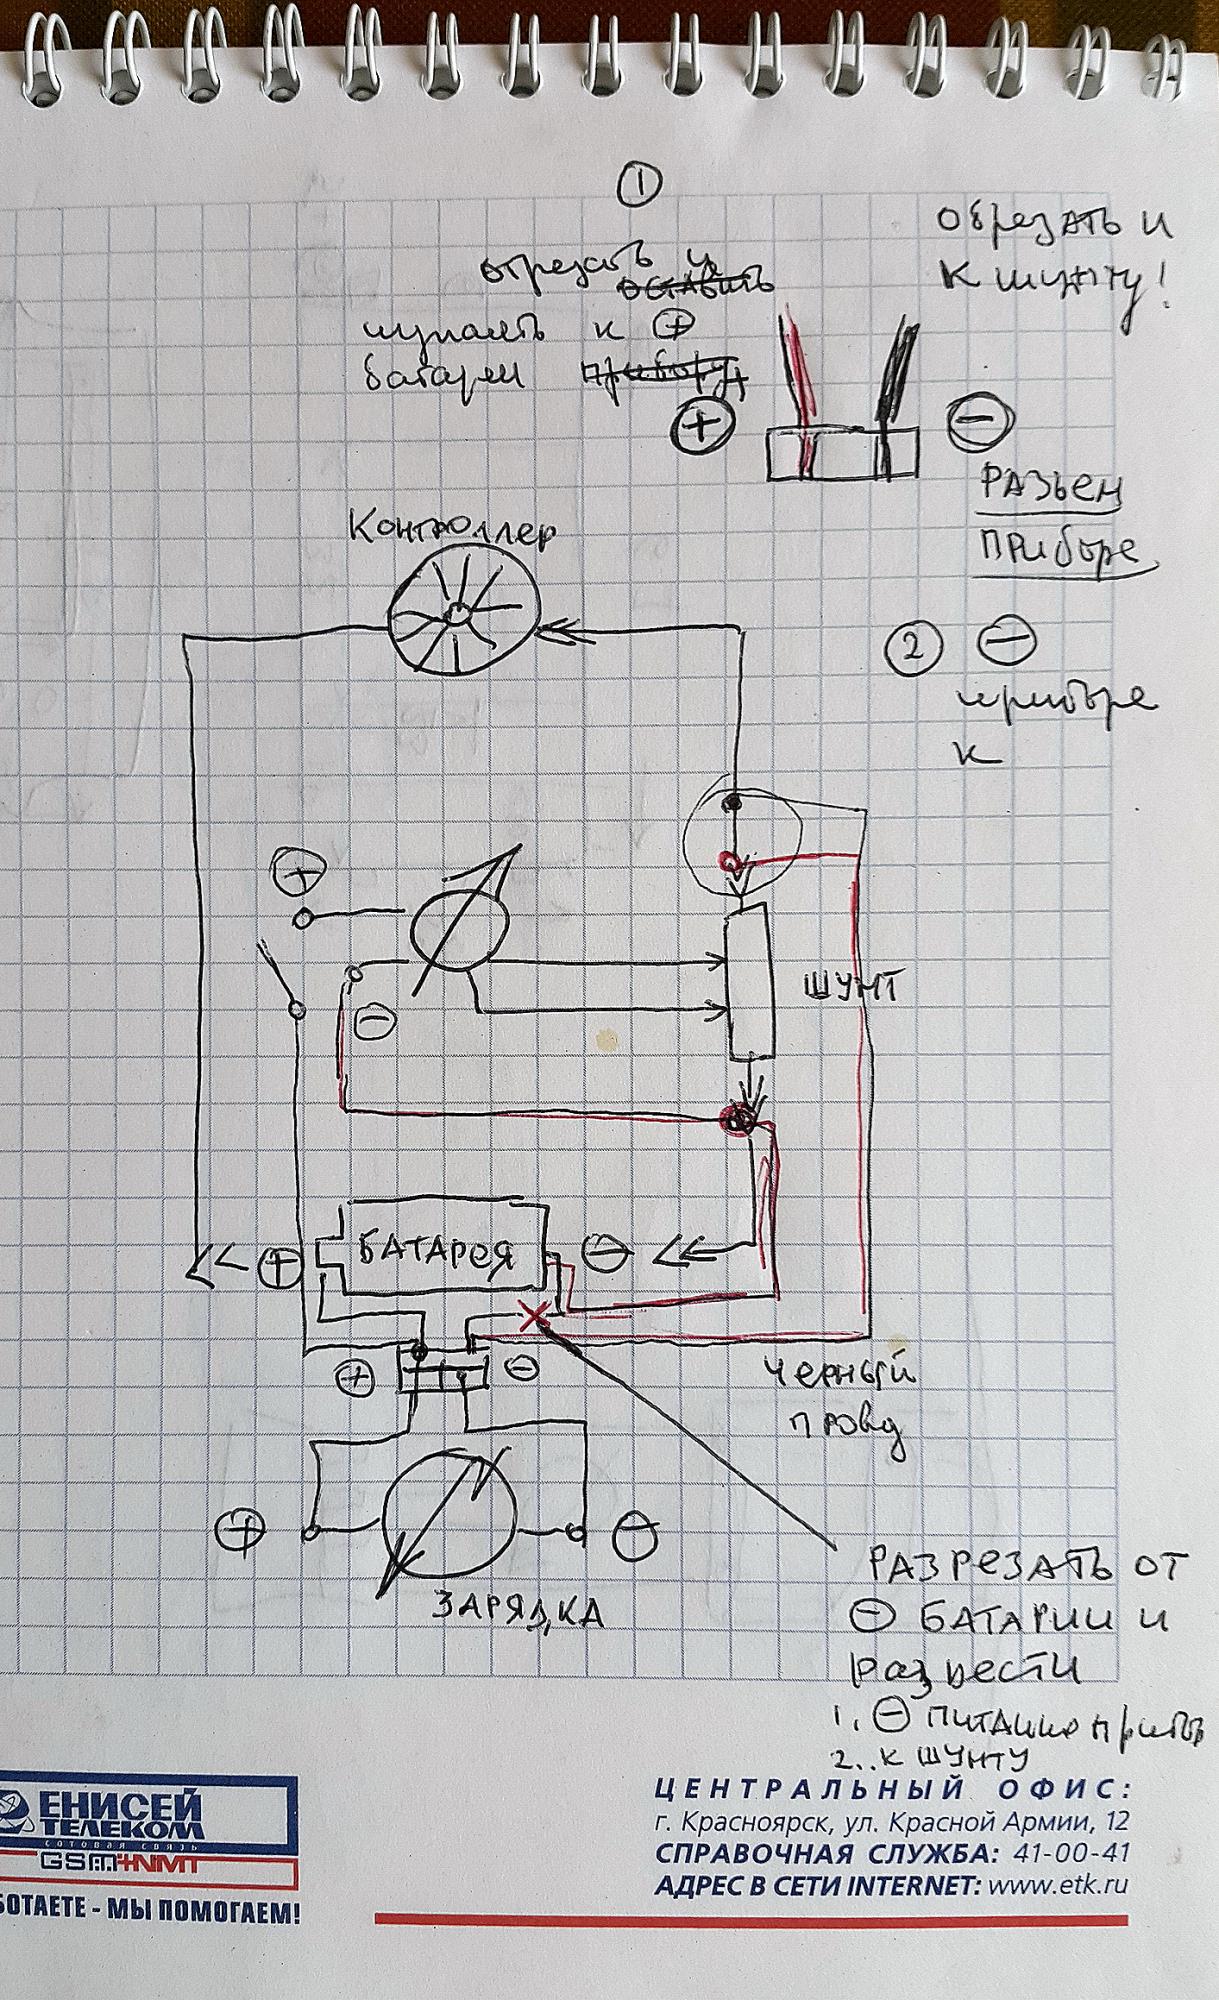 ①
Обрезать и
К шунту!
отрезать и
оставить
к ⊕
батареи прибора
⊕
⊖
РАЗЬЕМ
ПРИБОРА
Контроллер
② ⊖
прибора
к
⊕
⊖
ШУНТ
⊕ БАТАРЕЯ ⊖
⊕ ⊖
ЧЕРНЫЙ
провод
⊕ ⊖
ЗАРЯДКА
РАЗРЕЗАТЬ ОТ
⊖ БАТАРИИ И
РАЗВЕСТИ
1. ⊖ ПИТАНИЯ
2.. К ШУНТУ
ЕНИСЕЙ
ТЕЛЕКОМ
сотовая связь
GSM+NMT
БОТАЕТЕ - МЫ ПОМОГАЕМ!
ЦЕНТРАЛЬНЫЙ ОФИС:
г. Красноярск, ул. Красной Армии, 12
СПРАВОЧНАЯ СЛУЖБА: 41-00-41
АДРЕС В СЕТИ INTERNET: www.etk.ru